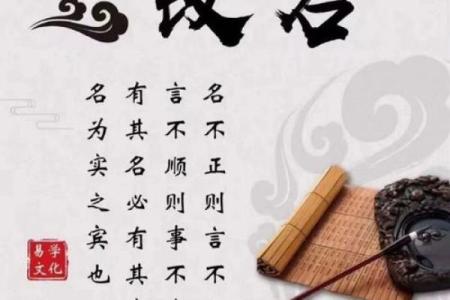 名不正则言不
言不顺则事不
有其名必有其
名为实之宾也
易学
文化